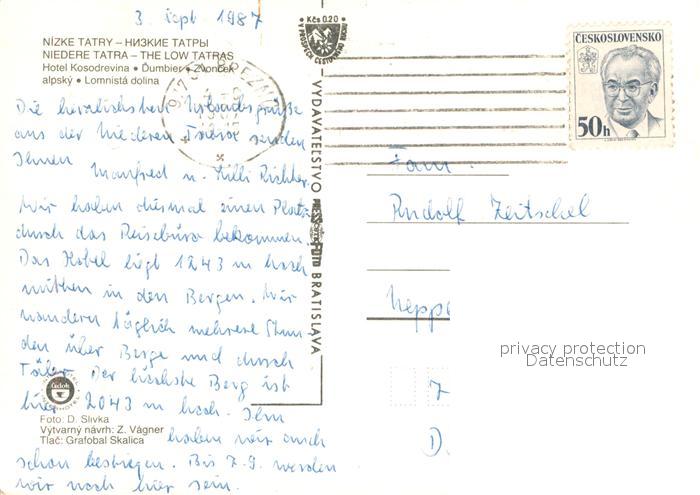 3. Sept 1987
NÍZKE TATRY – НИЗКИЕ ТАТРЫ
NIEDERE TATRA – THE LOW TATRAS
Hotel Kosodrevina • Ďumbier • Zvonček
alpský • Lomnistá dolina
Die herzlichsten Urlaubsgrüße
aus der Niederen Tatra senden
Ihnen Manfred u. Lilli Richter.
Wir haben diesmal einen Platz
durch das Reisebüro bekommen.
Das Hotel liegt 1243 m hoch
mitten in den Bergen. Wir
wandern täglich mehrere Stun-
den über Berge und durch
Täler. Der höchste Berg ist
hier 2043 m hoch. Ihn
haben wir auch
schon bestiegen. Bis 7.9. werden
wir noch hier sein.
Foto: D. Slivka
Výtvarný návrh: Z. Vágner
Tlač: Grafobal Skalica
Čedok
Kčs 0.20
VYDAVATEĽSTVO PRESSFOTO BRATISLAVA
ČESKOSLOVENSKO
50h
Fam.
Rudolf Zeitschel
7
D.
privacy protection
Datenschutz